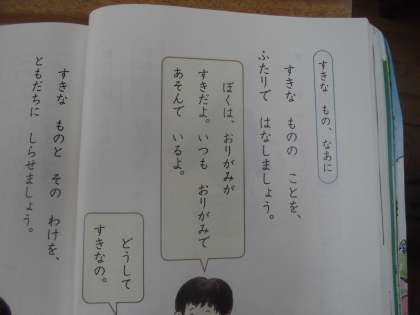 すきな もの、なあに
すきな ものの ことを、
ふたりで はなしましょう。
ぼくは、おりがみが
すきだよ。いつも おりがみで
あそんで いるよ。
どうして
すきなの。
すきな ものと その わけを、
ともだちに しらせましょう。